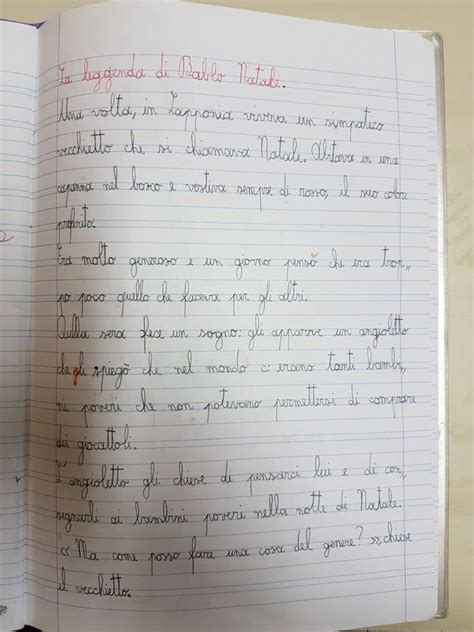 La leggenda di Babbo Natale.
Una volta, in Lapponia viveva un simpatico
vecchietto che si chiamava Natale. Abitava in una
capanna nel bosco e vestiva sempre di rosso, il suo colore
preferito.
Era molto generoso e un giorno pensò che era trop„
po poco quello che faceva per gli altri.
Quella sera fece un sogno: gli apparve un angioletto
che gli spiegò che nel mondo c'erano tanti bambi„
ni poveri che non potevano permettersi di comprare
dei giocattoli.
L'angioletto gli chiese di pensarci lui e di con„
segnarli ai bambini poveri nella notte di Natale.
«Ma come posso fare una cosa del genere?», chiese
il vecchietto.